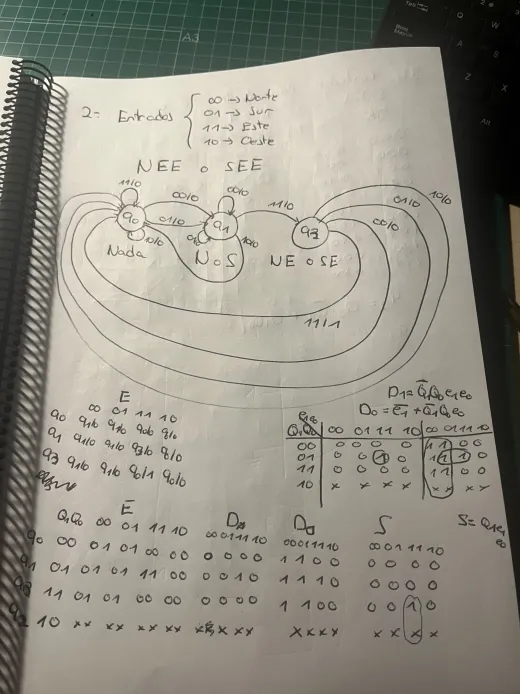 A3
2= Entradas { 00 → Norte
01 → Sur
11 → Este
10 → Oeste
NEE o SEE
11/0 00/0 00/0 11/0 01/0 10/0
q0 01/0 q1 q3 00/0
10/0 01/0 10/0
Nada N o S NE o SE
11/1
E
00 01 11 10
q0 q1/0 q1/0 q0/0 q0/0
q1 q1/0 q1/0 q3/0 q0/0
q3 q1/0 q1/0 q0/1 q0/0
D1 = Q̅1Q0e1e0
D0 = e̅1 + Q̅1Q0e0
e1e0
Q1Q0 00 01 11 10 00 01 11 10
00 0 0 0 0 1 1 0 0
01 0 0 1 0 1 1 1 0
11 0 0 0 0 1 1 0 0
10 x x x x x x x x
E
Q1Q0 00 01 11 10 00 01 11 10 D0 00 01 11 10 S 00 01 11 10
S = Q1e1e0
q0 00 01 01 00 00 0 0 0 0 1 1 0 0 0 0 0 0
q1 01 01 01 11 00 0 0 1 0 1 1 1 0 0 0 0 0
q3 11 01 01 00 00 0 0 0 0 1 1 0 0 0 0 1 0
q2 10 xx xx xx xx x x x x x x x x x x x x